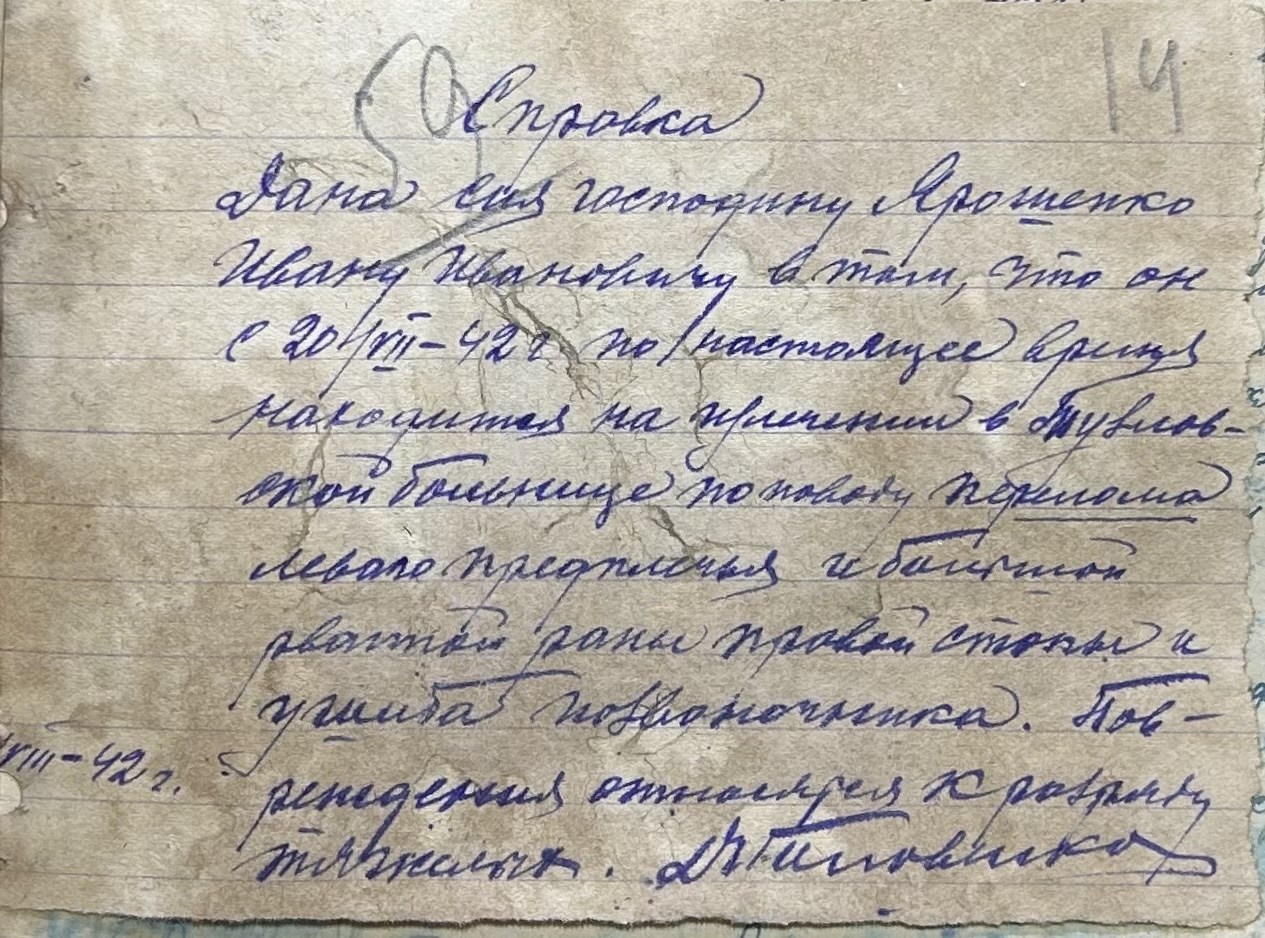 14
59
Справка
Дана сия господину Ярошенко
Ивану Ивановичу в том, что он
с 20/VII-42 г по настоящее время
находится на излечении в Тузлов-
ской больнице по поводу перелома
левого предплечья и большой
рваной раны правой стопы и
ушиба позвоночника. Пов-
VIII-42 г.
реждения относятся к разряду
тяжелых.